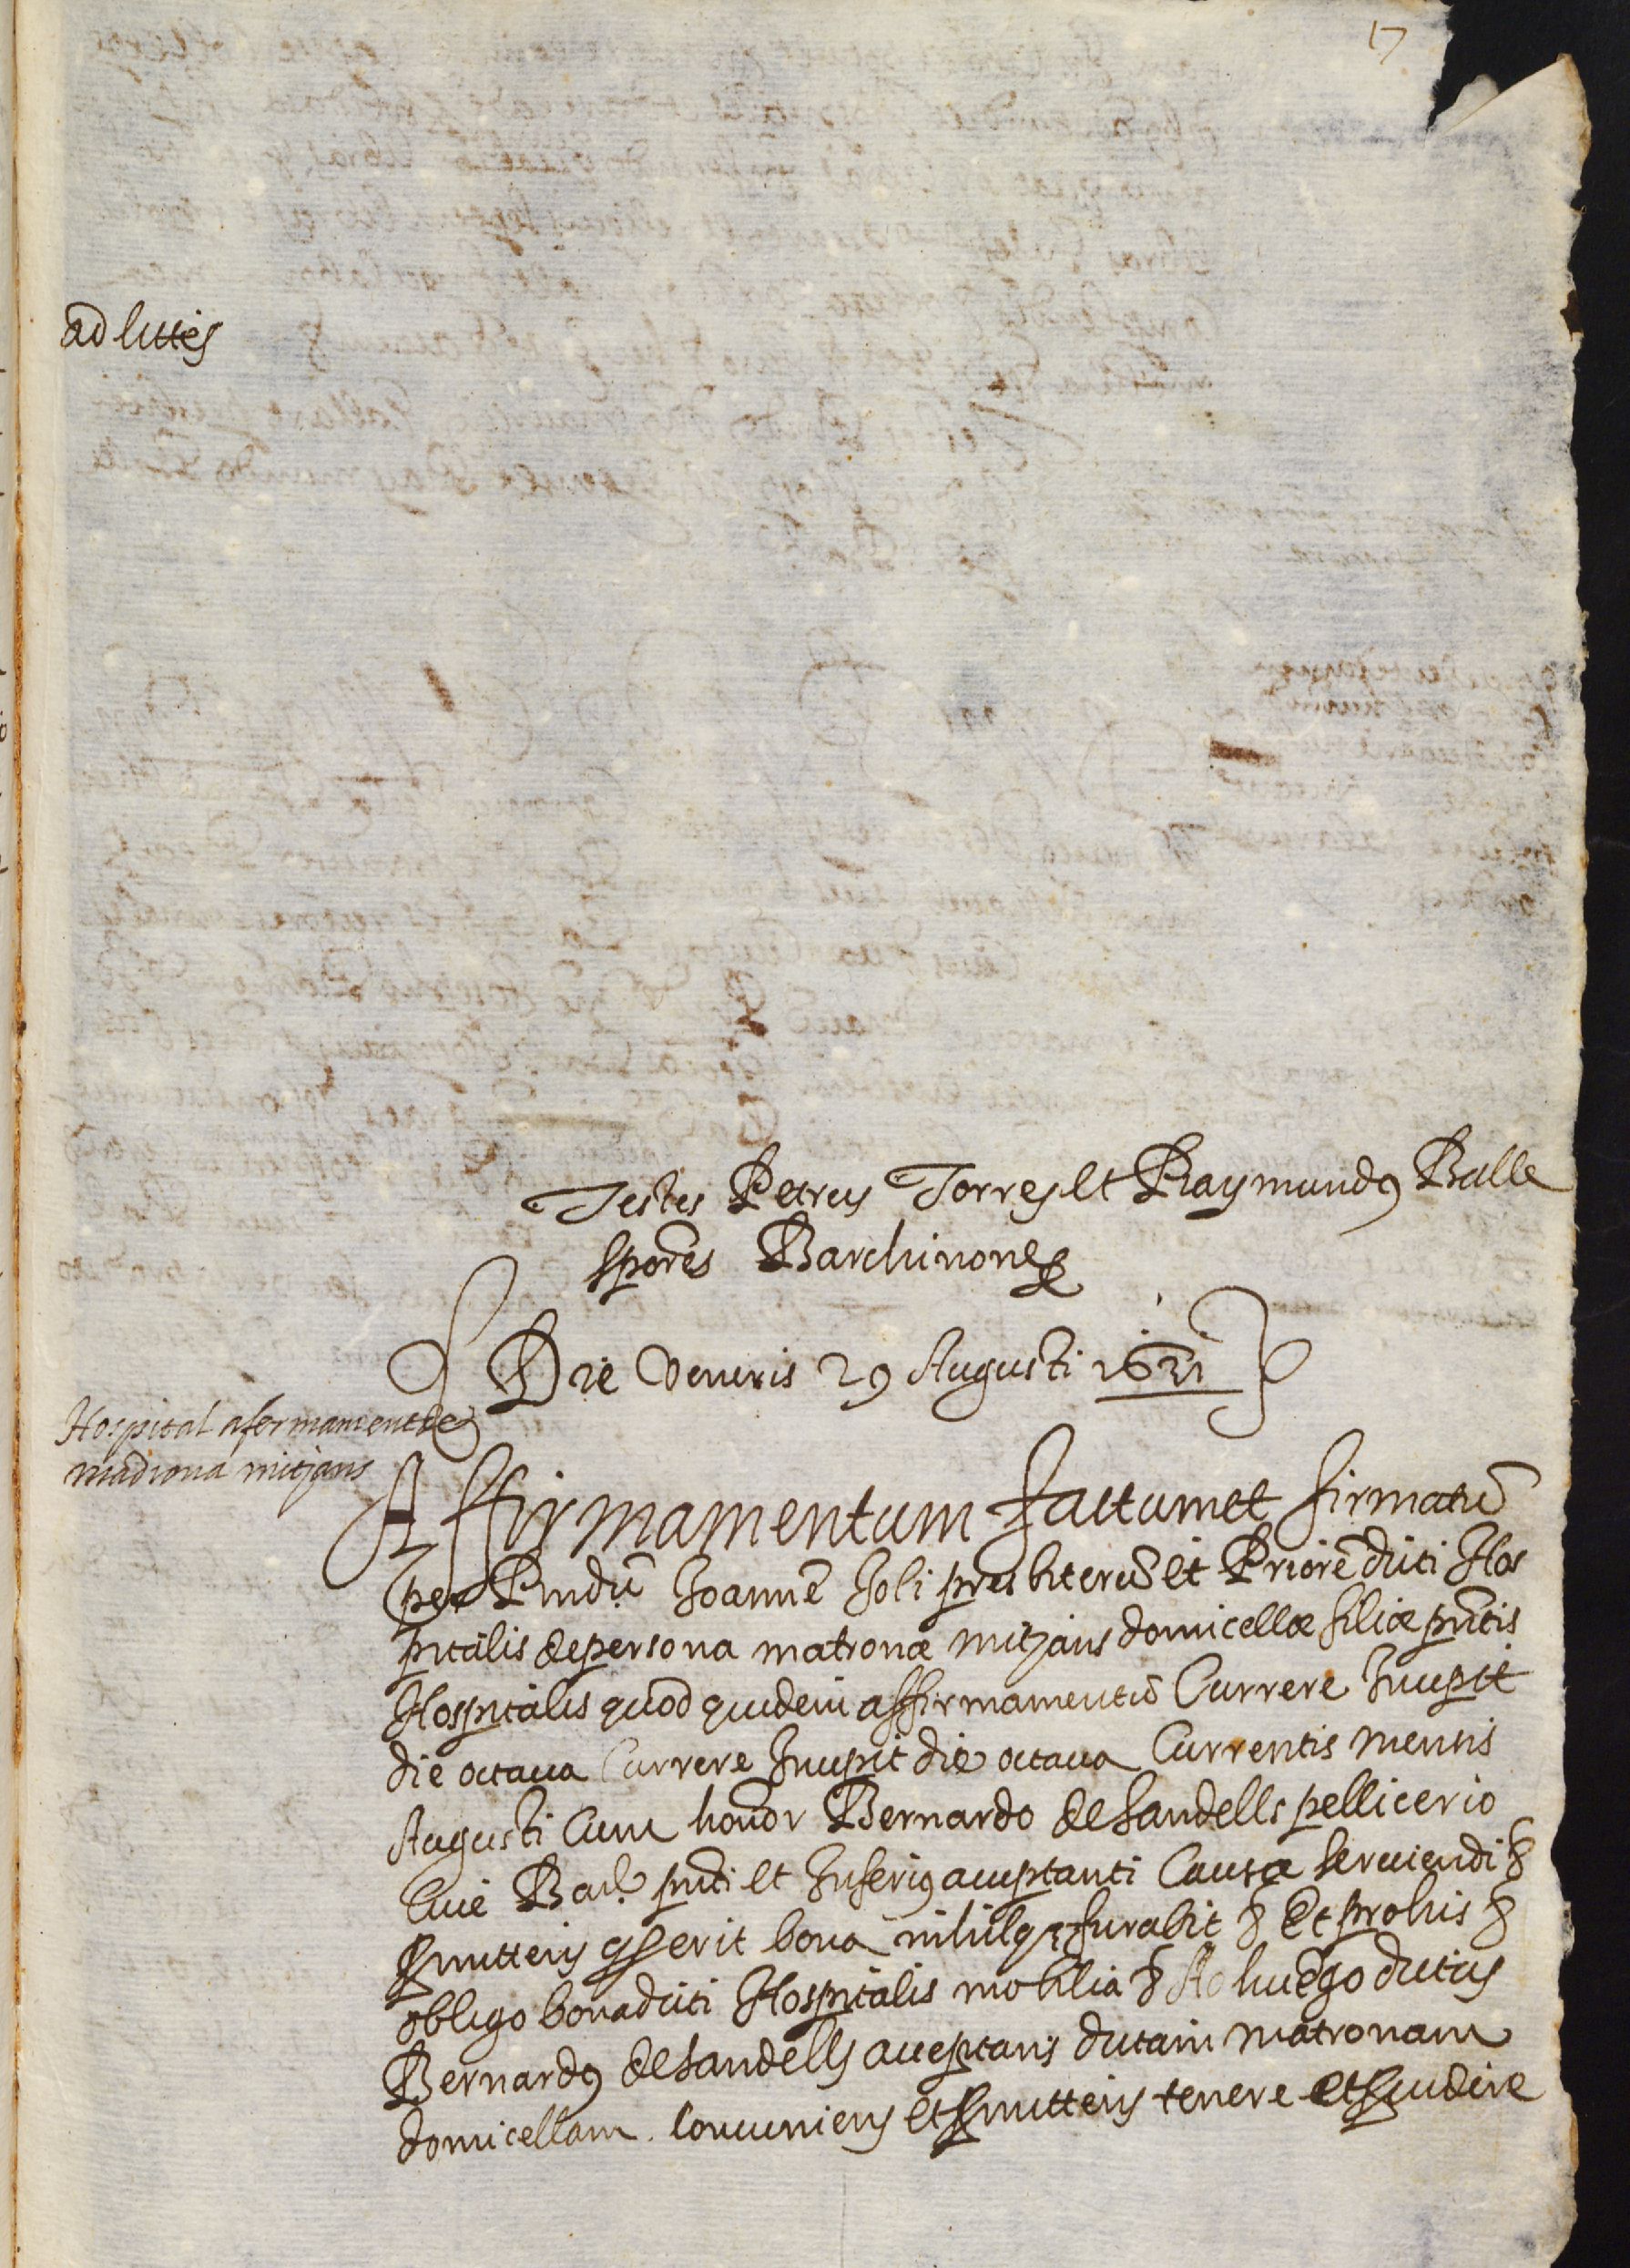 17
ad littes
Testes Petrus Torres et Raymundus Balle
sportes Barchinone &
Die Veneris 29 Augusti 1621
Hospital afermament de
madrona mitjans
Affirmamentum factum et firmatū
per Rndū Joannē Joli presbiterū et Priorē dicti Hos
pitalis de persona matronæ mitjans domicellæ filiæ pntis
Hospitalis quod quidem affirmamentū Currere Incepit
die octava Currere Incepit die octava Currentis mensis
Augusti Cum honor Bernardo desandells pellicerio
Cive Bar. pnti et Inferius acceptanti Causa serviendi &
promittens qd erit bona nihilqe furabit & Et pro his &
obligo bona dicti Hospitalis mobilia & Ad hæc ego dictus
Bernardus desandells acceptans dictam matronam
domicellam. Conveniens et promittens tenere et